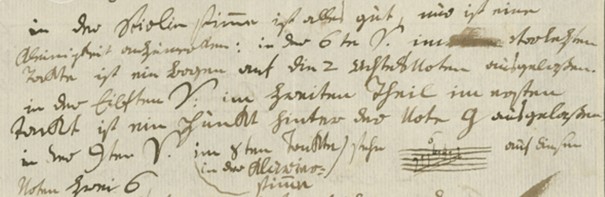 in der Violin stimme ist alles gut, nur ist eine
Kleinigkeit anzumerken: in der 6te V. im vorletzten
Takte ist ein Bogen auf die 2 Achtel Noten ausgelassen.
in der Eilften V: im zweiten Theil im ersten
Takt ist ein Punkt hinter der Note g ausgelassen
in der 9ten V. im 8ten Takte) sehe auf diesen
(in der Klavier=
Noten zwei 6 stimme